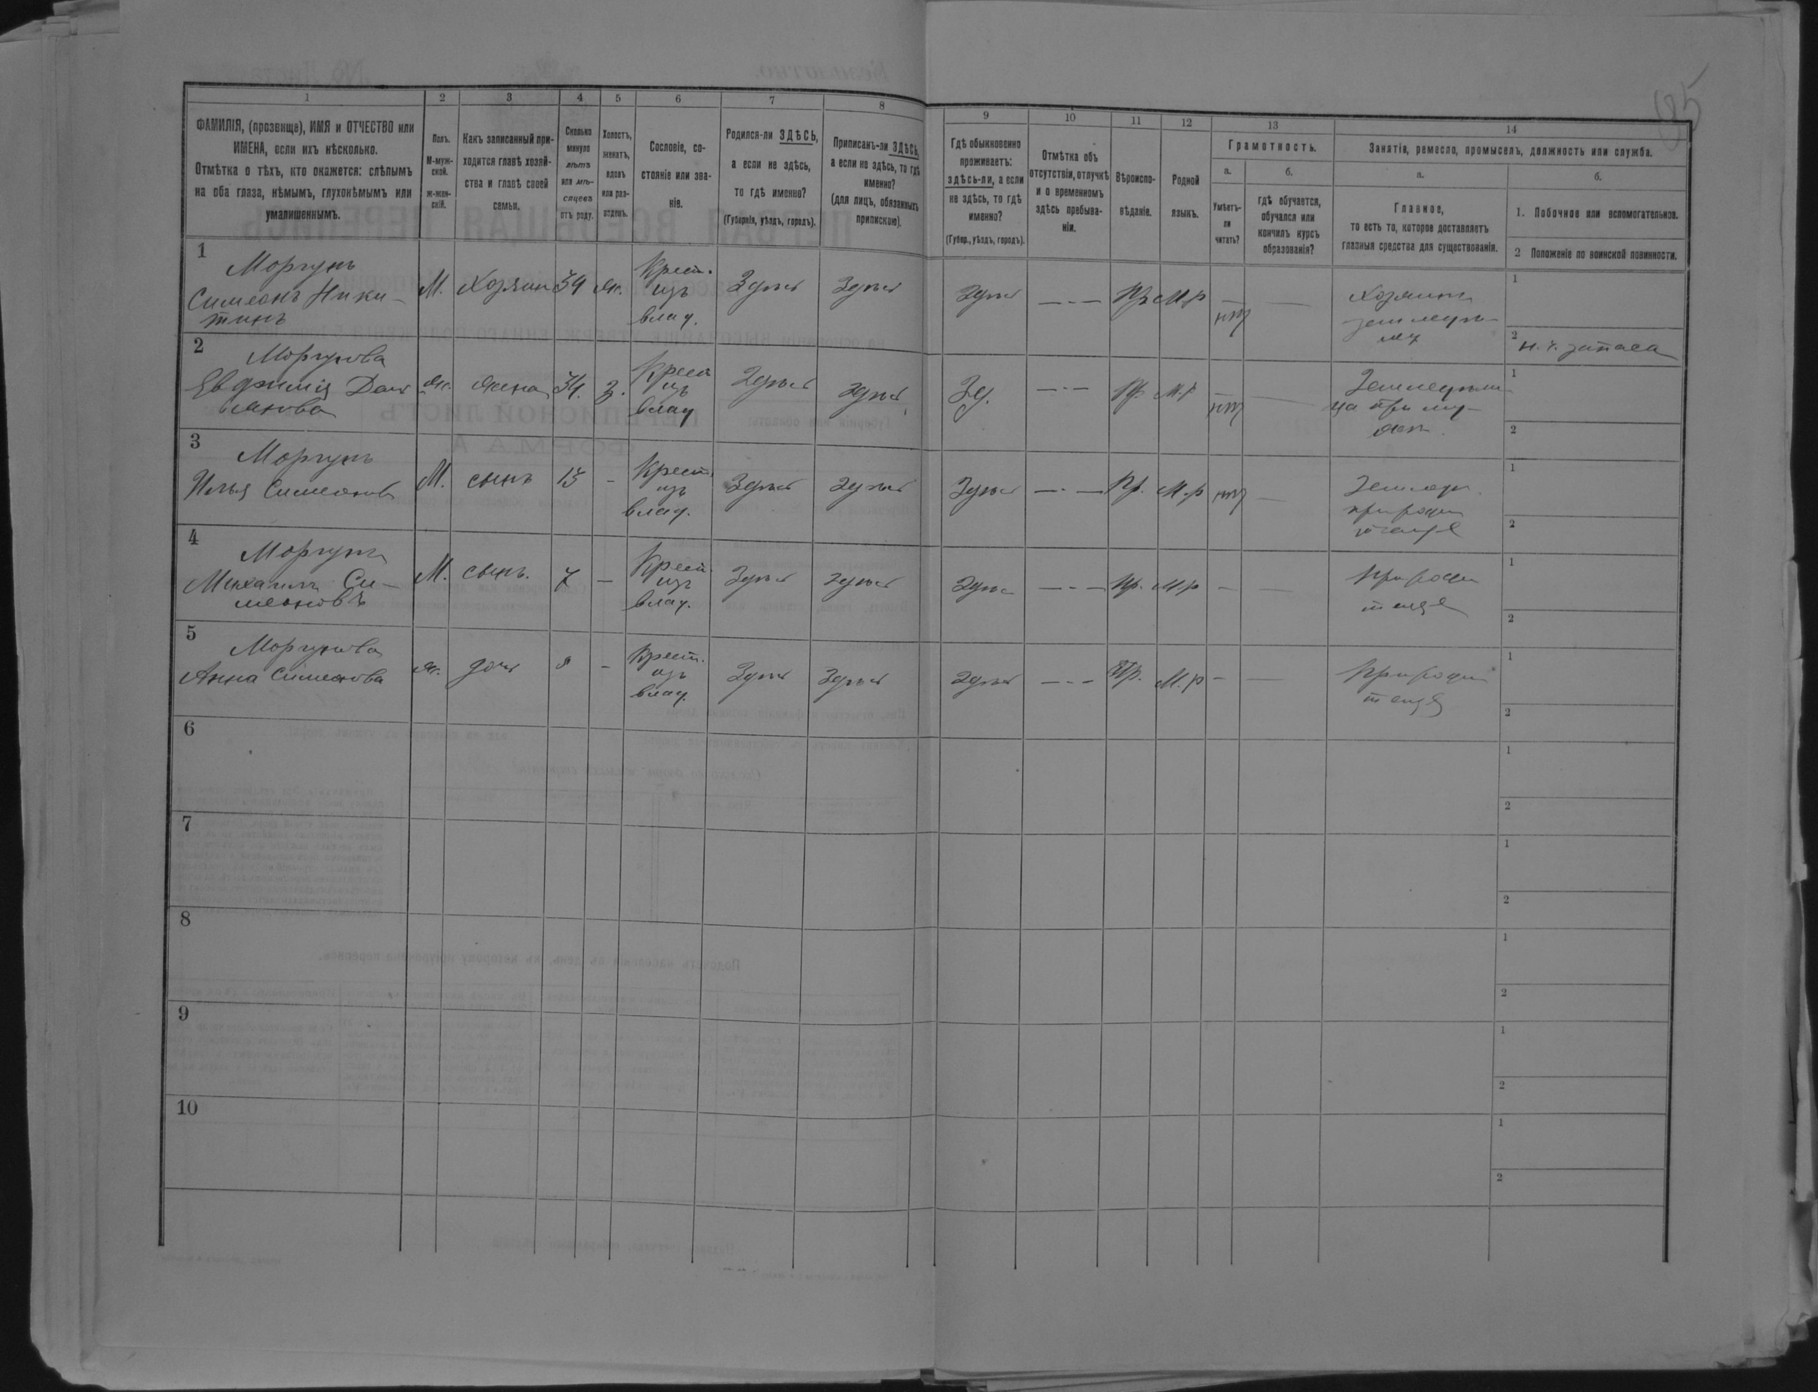 1
2
3
4
5
6
7
8
ФАМИЛІЯ, (прозвище), ИМЯ и ОТЧЕСТВО или
ИМЕНА, если ихъ нѣсколько.
Отмѣтка о тѣхъ, кто окажется: слѣпымъ
на оба глаза, нѣмымъ, глухонѣмымъ или
умалишеннымъ.
Полъ.
М-муж-
ской.
ж-жен-
скій.
Какъ записанный при-
ходится главѣ хозяй-
ства и главѣ своей
семьи.
Сколько
минуло
лѣтъ
или мѣ-
сяцевъ
отъ роду.
Холостъ,
женатъ,
вдовъ
или раз-
веденъ.
Сословіе, со-
стояніе или зва-
ніе.
Родился-ли ЗДѢСЬ,
а если не здѣсь,
то гдѣ именно?
(Губернія, уѣздъ, городъ).
Приписанъ-ли ЗДѢСЬ,
а если не здѣсь, то гдѣ
именно?
(для лицъ, обязанныхъ
припискою).
9
10
11
12
13
14
Гдѣ обыкновенно
проживаетъ:
здѣсь-ли, а если
не здѣсь, то гдѣ
именно?
(Губер., уѣздъ, городъ).
Отмѣтка объ
отсутствіи, отлучкѣ
и о временномъ
здѣсь пребыва-
ніи.
Вѣроиспо-
вѣданіе.
Родной
языкъ.
Грамотность.
а.
Умѣетъ-
ли
читать?
б.
гдѣ обучается,
обучался или
кончилъ курсъ
образованія?
Занятія, ремесло, промыселъ, должность или служба.
а.
Главное,
то есть то, которое доставляетъ
главныя средства для существованія.
б.
1. Побочное или вспомогательное.
2 Положеніе по воинской повинности.
1
Моргунъ
Симеонъ Ники-
тинъ
М.
Хозяинъ
39
ж.
Крест.
изъ
влад.
Здѣсь
Здѣсь
Здѣсь
Пр
М.р
нѣт
Хозяинъ
земледѣ-
1
2
н. ч. запаса
2
Моргунова
Евфимія
ж.
жена
34.
з.
Крест
изъ
влад
Здѣсь
здѣсь
Зд.
Пр.
М.р
нѣт
1
2
3
Моргунъ
Илья Симеоновъ
М.
сынъ
13
-
Крест.
изъ
влад.
Здѣсь
здѣсь
Здѣсь
Пр.
М.р
нѣт
при роди
теляхъ
1
2
4
Моргунъ
Михаилъ Си-
меоновъ
М.
сынъ.
7
-
Крест.
изъ
влад.
Здѣсь
здѣсь
здѣсь
Пр.
М.р
-
при роди
теляхъ
1
2
5
Моргунова
Анна Симеонова
ж.
дочь
-
Крест.
изъ
влад.
Здѣсь
Здѣсь
здѣсь
Пр.
М.р
-
при роди
теляхъ
1
2
6
1
2
7
1
2
8
1
2
9
1
2
10
1
2